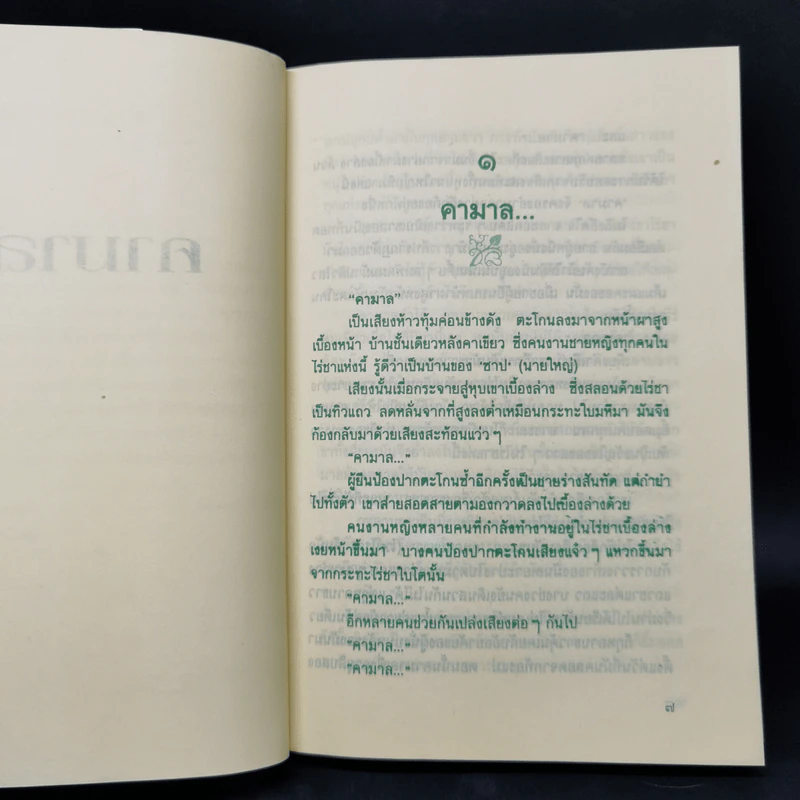 ๑
คามาล...
"คามาล"
เป็นเสียงห้าวทุ้มค่อนข้างดัง ตะโกนลงมาจากหน้าผาสูง
เบื้องหน้า บ้านชั้นเดียวหลังคาเขียว ซึ่งคนงานชายหญิงทุกคนใน
ไร่ชาแห่งนี้ รู้ดีว่าเป็นบ้านของ 'ซาป' (นายใหญ่)
เสียงนั้นเมื่อกระจายสู่หุบเขาเบื้องล่าง ซึ่งสลอนด้วยไร่ชา
เป็นทิวแถว ลดหลั่นจากที่สูงลงต่ำเหมือนกระทะใบมหึมา มันจึง
ก้องกลับมาด้วยเสียงสะท้อนแว่วๆ
"คามาล..."
ผู้ยืนป้องปากตะโกนซ้ำอีกครั้งเป็นชายร่างสันทัด แต่กำยำ
ไปทั้งตัว เขาส่ายสอดสายตามองกวาดลงไปเบื้องล่างด้วย
คนงานหญิงหลายคนที่กำลังทำงานอยู่ในไร่ชาเบื้องล่าง
เงยหน้าขึ้นมา บางคนป้องปากตะโกนเสียงแจ๋วๆ แหวกขึ้นมา
จากกระทะไร่ชาใบโตนั้น
"คามาล..."
อีกหลายคนช่วยกันเปล่งเสียงต่อๆ กันไป
"คามาล..."
"คามาล..."
๗